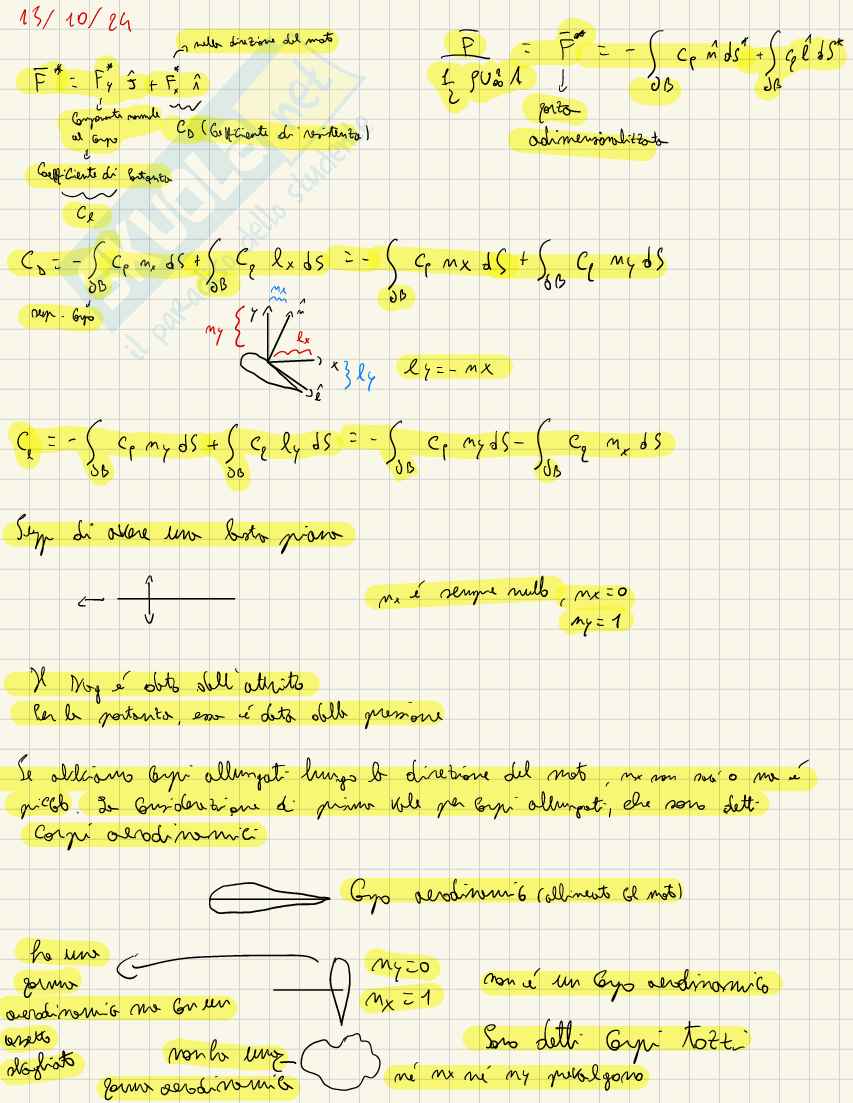 13/10/24
→ nella direzione del moto
F̄* = F*y ĵ + F*x î
Componente normale al corpo
CD (Coefficiente di resistenza)
Coefficiente di portanza
Cl
F̄ / (1/2 ρU²∞ 1) = F̄* = - ∫∂B Cp n̂ dS* + ∫∂B Cq l̂ dS*
forza
adimensionalizzata
CD = - ∫∂B Cp nx dS + ∫∂B Cq lx dS = - ∫∂B Cp nx dS + ∫∂B Cq ny dS
sup. corpo
nx
y n̂
ny
lx
x
ly
l̂
ly = - nx
Cl = - ∫∂B Cp ny dS + ∫∂B Cq ly dS = - ∫∂B Cp ny dS - ∫∂B Cq nx dS
Supp di avere una lastra piana
nx è sempre nullo, nx = 0
ny = 1
Il Drag é dato dall'attrito
Per la portanza, essa é data dalla pressione
Se abbiamo corpi allungati lungo la direzione del moto, nx non sarà 0 ma é
piccolo. La considerazione di prima vale per corpi allungati, che sono detti
corpi aerodinamici
Corpo aerodinamico (allineato al moto)
ha una
forma
aerodinamica ma con un
assetto
sbagliato
ny = 0
nx = 1
non é un corpo aerodinamico
Sono detti corpi tozzi
non ha una
forma aerodinamica
né nx né ny prevalgono
SKUOLA.net
il paradiso dello studente